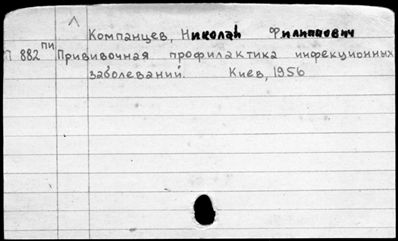 Компанцев, Николай Филиппович
П 882 пи Прививочная профилактика инфекционных
заболеваний. Киев, 1956